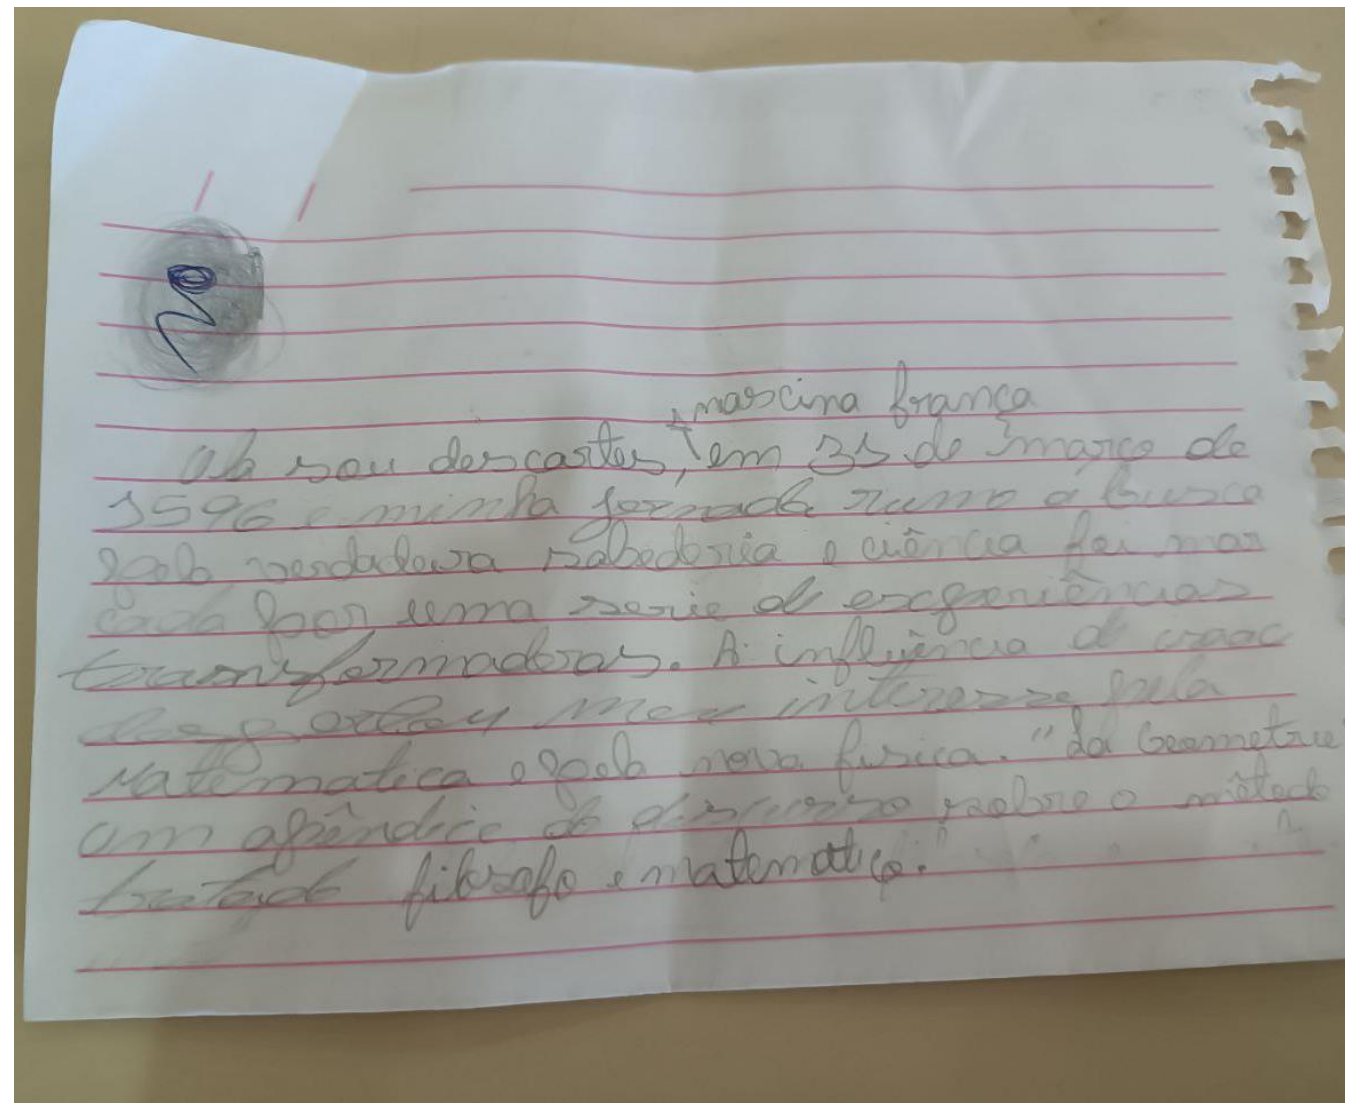 nascina frança
sou descartes, em 31 de março de
1596 e minha jornada rumo a busca
pela verdadeira sabedoria e ciência foi mar
cada por uma serie de
transformadoras. A influência d
meu interesse pela
Matematica e pela nova fisica. "La Geometrie"
um apêndice do discurso sobre o método
tratado filosofo e matematico.